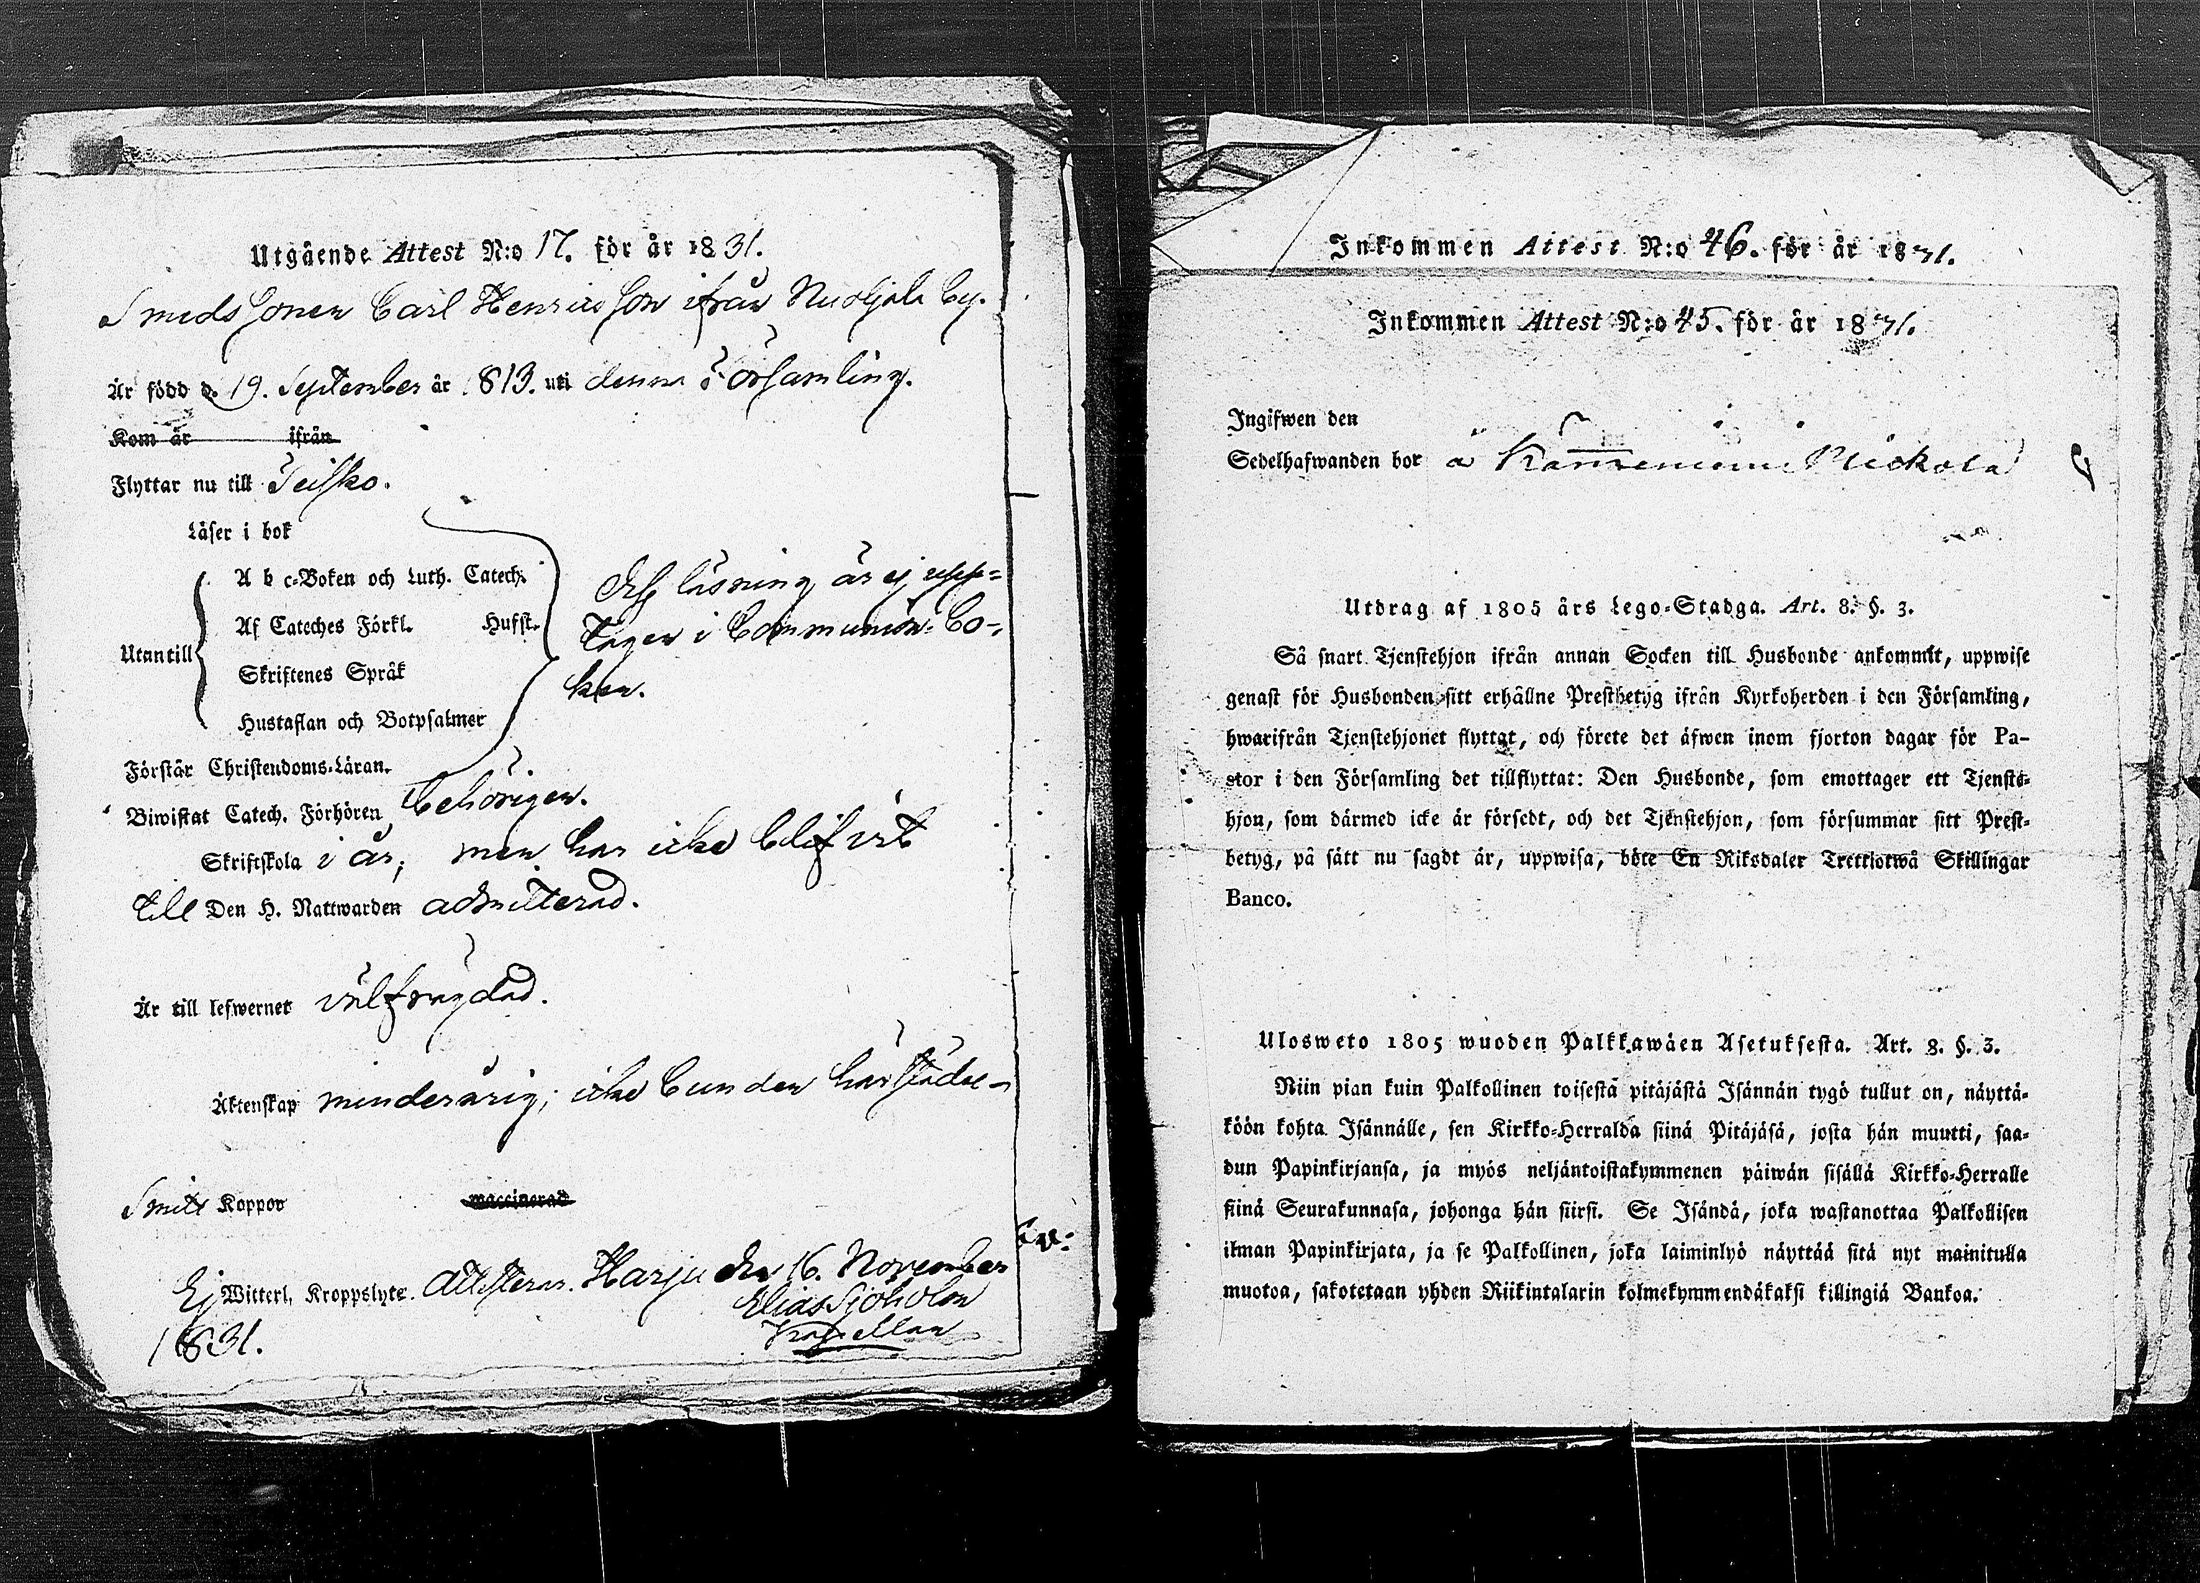 Utgående Attest N:o 17. för år 1831.
Smedssonen Carl Henricsson ifrån Nuoljala by.
Är född d. 19. September år 1813. uti denna Församling.
Kom år ifrån
Flyttar nu till Teisko.
Läser i bok
A b c-Boken och Luth. Catech.
Af Cateches Förkl. Husst.
Utantill
Skriftenes Språk
Hustaflan och Botpsalmer
läsning är ej upp-
tagen i Communion-bo-
ken.
Förstår Christendoms-Läran.
Biwistat Catech. Förhören behörigen.
Skriftskola i år; men har icke blifvit
till Den H. Nattwarden admitterad.
Är till lefwernet välfrägdad.
Äktenskap minderårig; icke bunden härstädes
Smitt Koppor waccinerad
Ej Witterl. Kroppslyte. Attesterar. Harju den 16. November
1831.
Elias Sjöholm
Kapellan
Inkommen Attest N:o 46. för år 1831.
Inkommen Attest N:o 45. för år 1831.
Ingifwen den
Sedelhafwanden bor å Kammeniemi Mickola
Utdrag af 1805 års Lego-Stadga. Art. 8. §. 3.
Så snart Tjenstehjon ifrån annan Socken till Husbonde ankommit, uppwise
genast för Husbonden sitt erhållne Prestbetyg ifrån Kyrkoherden i den Församling,
hwarifrån Tjenstehjonet flyttat, och förete det äfwen inom fjorton dagar för Pa-
stor i den Församling det tillflyttat: Den Husbonde, som emottager ett Tjenste-
hjon, som därmed icke är försedt, och det Tjenstehjon, som försummar sitt Prest-
betyg, på sätt nu sagdt är, uppwisa, böte En Riksdaler Trettiotwå Skillingar
Banco.
Ulosweto 1805 wuoden Palkkawäen Asetuksesta. Art. 8. §. 3.
Niin pian kuin Palkollinen toisesta pitäjästä Isännän tygö tullut on, näyttä-
köön kohta Isännälle, sen Kirkko-Herralda siinä Pitäjäsä, josta hän muutti, saa-
dun Papinkirjansa, ja myös neljäntoistakymmenen päiwän sisällä Kirkko-Herralle
siinä Seurakunnasa, johonga hän siirsi. Se Isändä, joka wastanottaa Palkollisen
ilman Papinkirjata, ja se Palkollinen, joka laiminlyö näyttää sitä nyt mainitulla
muotoa, sakotetaan yhden Riikintalarin kolmekymmendäkaksi killingiä Bankoa.